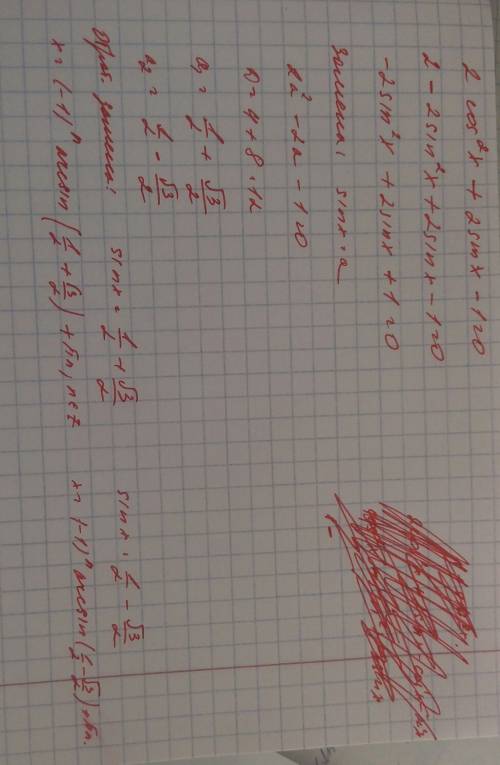 2 cos²x + 2sinx - 1=0
2 - 2sin²x + 2sinx - 1=0
-2sin²x + 2sinx + 1=0
Замена: sinx = a
2a² - 2a - 1=0
D = 4 + 8 = 12
a₁ = 1/2 + √3/2
a₂ = 1/2 - √3/2
Обрат. замена: sinx = 1/2 + √3/2 sinx = 1/2 - √3/2
x = (-1)ⁿ arcsin(1/2 + √3/2) + πn, n∈Z x = (-1)ⁿ arcsin(1/2 - √3/2) + πn.